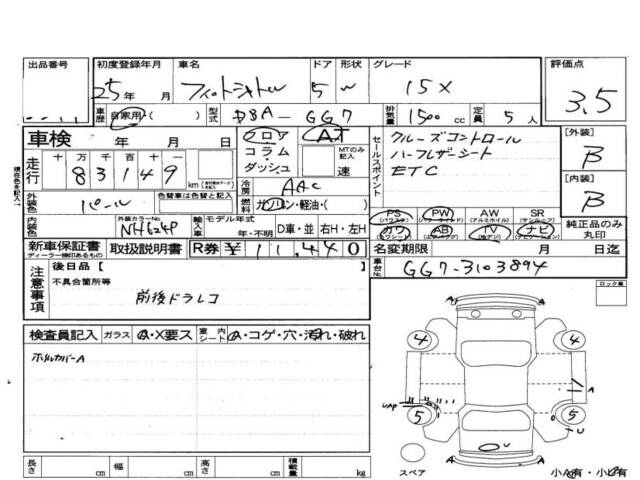 出品番号 初度登録年月 車名 ドア 形状 グレード 評価点
25年 月 フィットシャトル 5 W 15X 3.5
車歴 自家用・( ) 型式 DBA- GG7 排気量 1500 cc 定員 5 人
車検 年 月 日 フロア コラム・ダッシュ AT MTのみ記入 速
走行 十 万 千 百 十 一
83149 km
冷房 AAC
外装色 パール 色替車は色替と記入 燃料 ガソリン・軽油・( )
内装色 外装カラーNo. NH624P 輸入車 モデル年式 年・不明 D車・並 右H・左H
新車保証書 ディーラー捺印あるもの 取扱説明書 R券 ¥ 11,440
セールスポイント
クルーズコントロール
ハーフレザーシート
ETC
[外装] B
[内装] B
PS (パワステ) PW (パワーウインド) AW (アルミホイル) SR (サンルーフ)
カワ (カワシート) AB (エアバッグ) TV (地デジ) ナビ
純正品のみ丸印
名変期限 月 日迄
車台No. GG7-3103894
注意事項
後日品【 】
不具合箇所等
前後ドラレコ
検査員記入 ガラス A・X要ス 室内シート A・コゲ・穴・汚れ・破れ
ホイルカバーA
ロック薬
4 4
A
UAP 5 5
U
U
A
スペア
小A有・小E有
長さ cm 幅 cm 高さ cm 積載量 kg